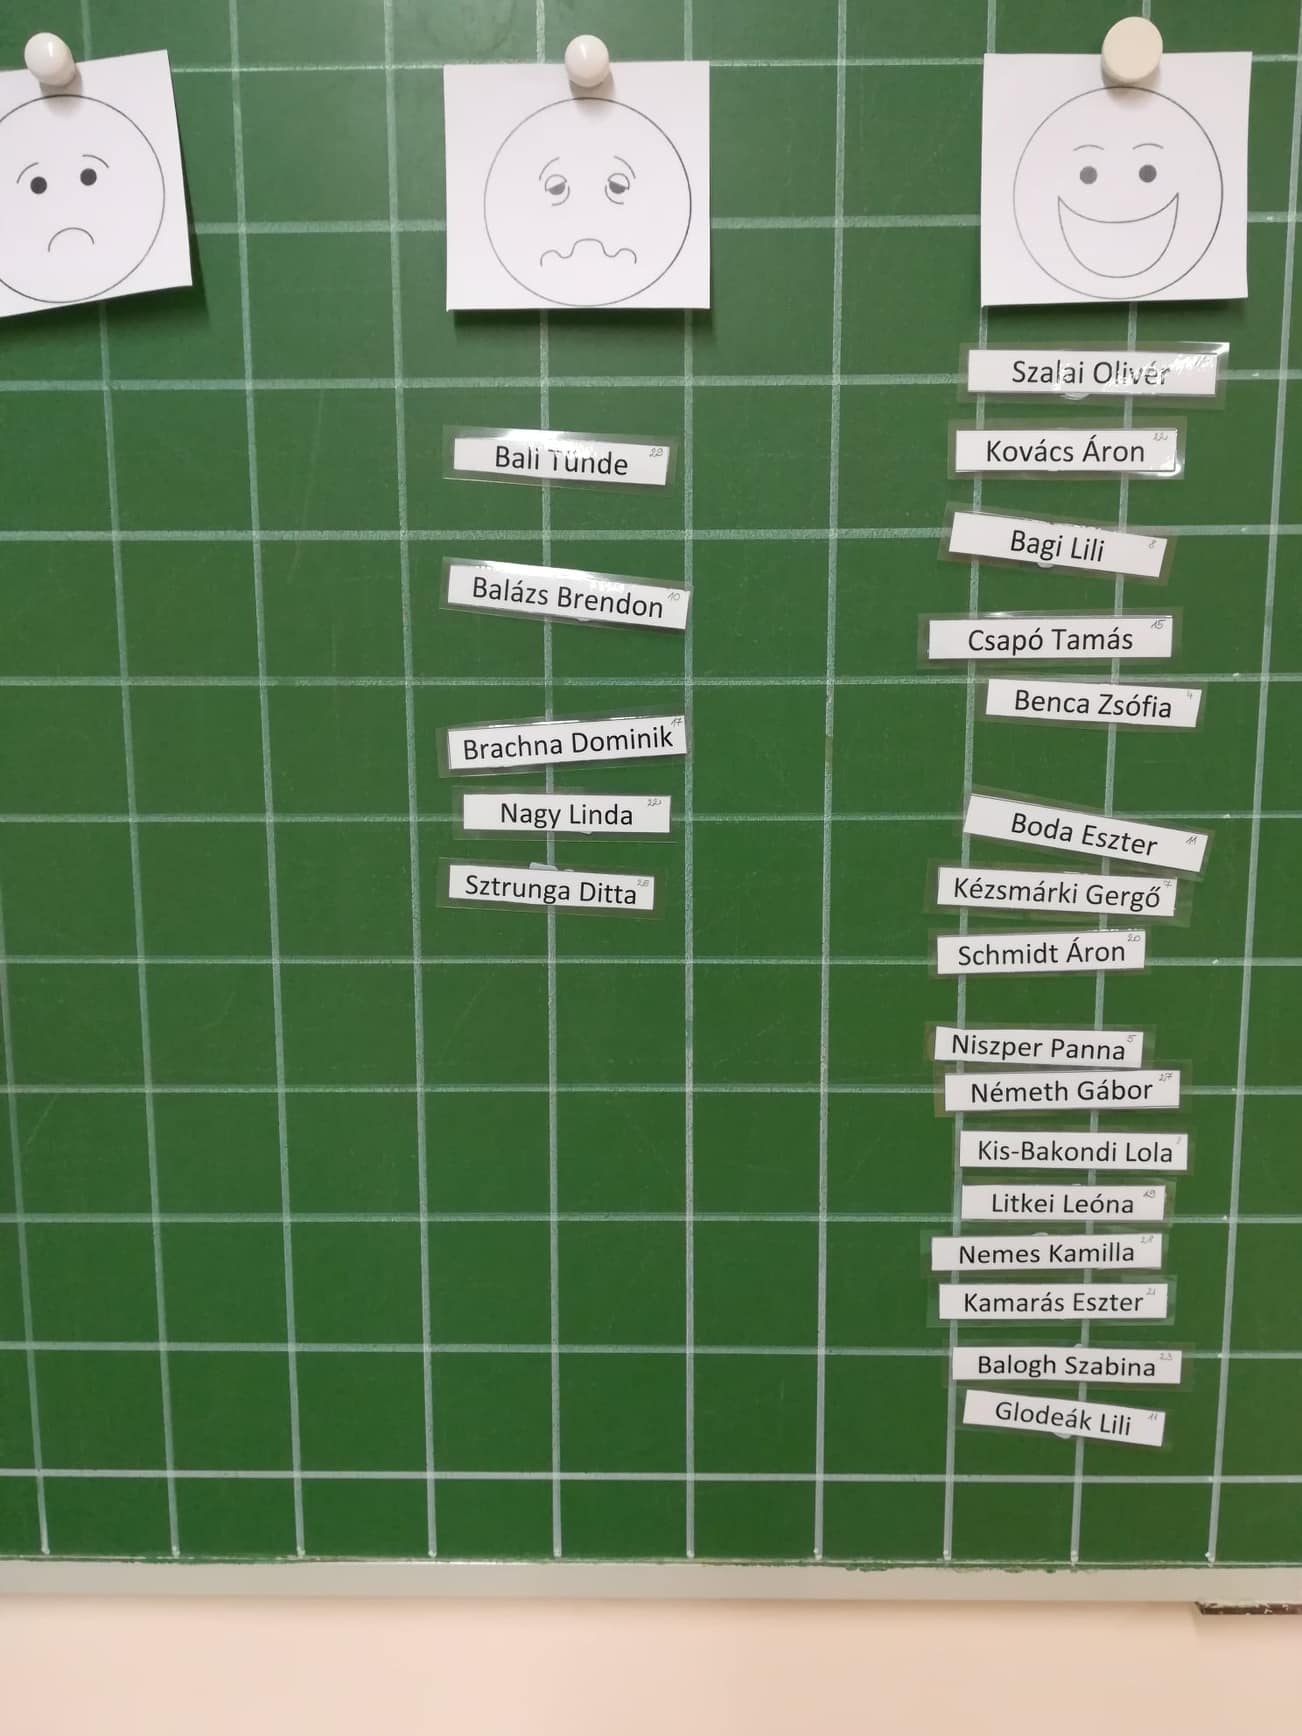 Bali Tünde 29
Balázs Brendon 10
Brachna Dominik 17
Nagy Linda
Sztrunga Ditta
Szalai Olivér
Kovács Áron 22
Bagi Lili 8
Csapó Tamás 15
Benca Zsófia 4
Boda Eszter 11
Kézsmárki Gergő 7
Schmidt Áron 20
Niszper Panna 5
Németh Gábor 27
Kis-Bakondi Lola 2
Litkei Leóna 19
Nemes Kamilla
Kamarás Eszter 21
Balogh Szabina 23
Glodeák Lili